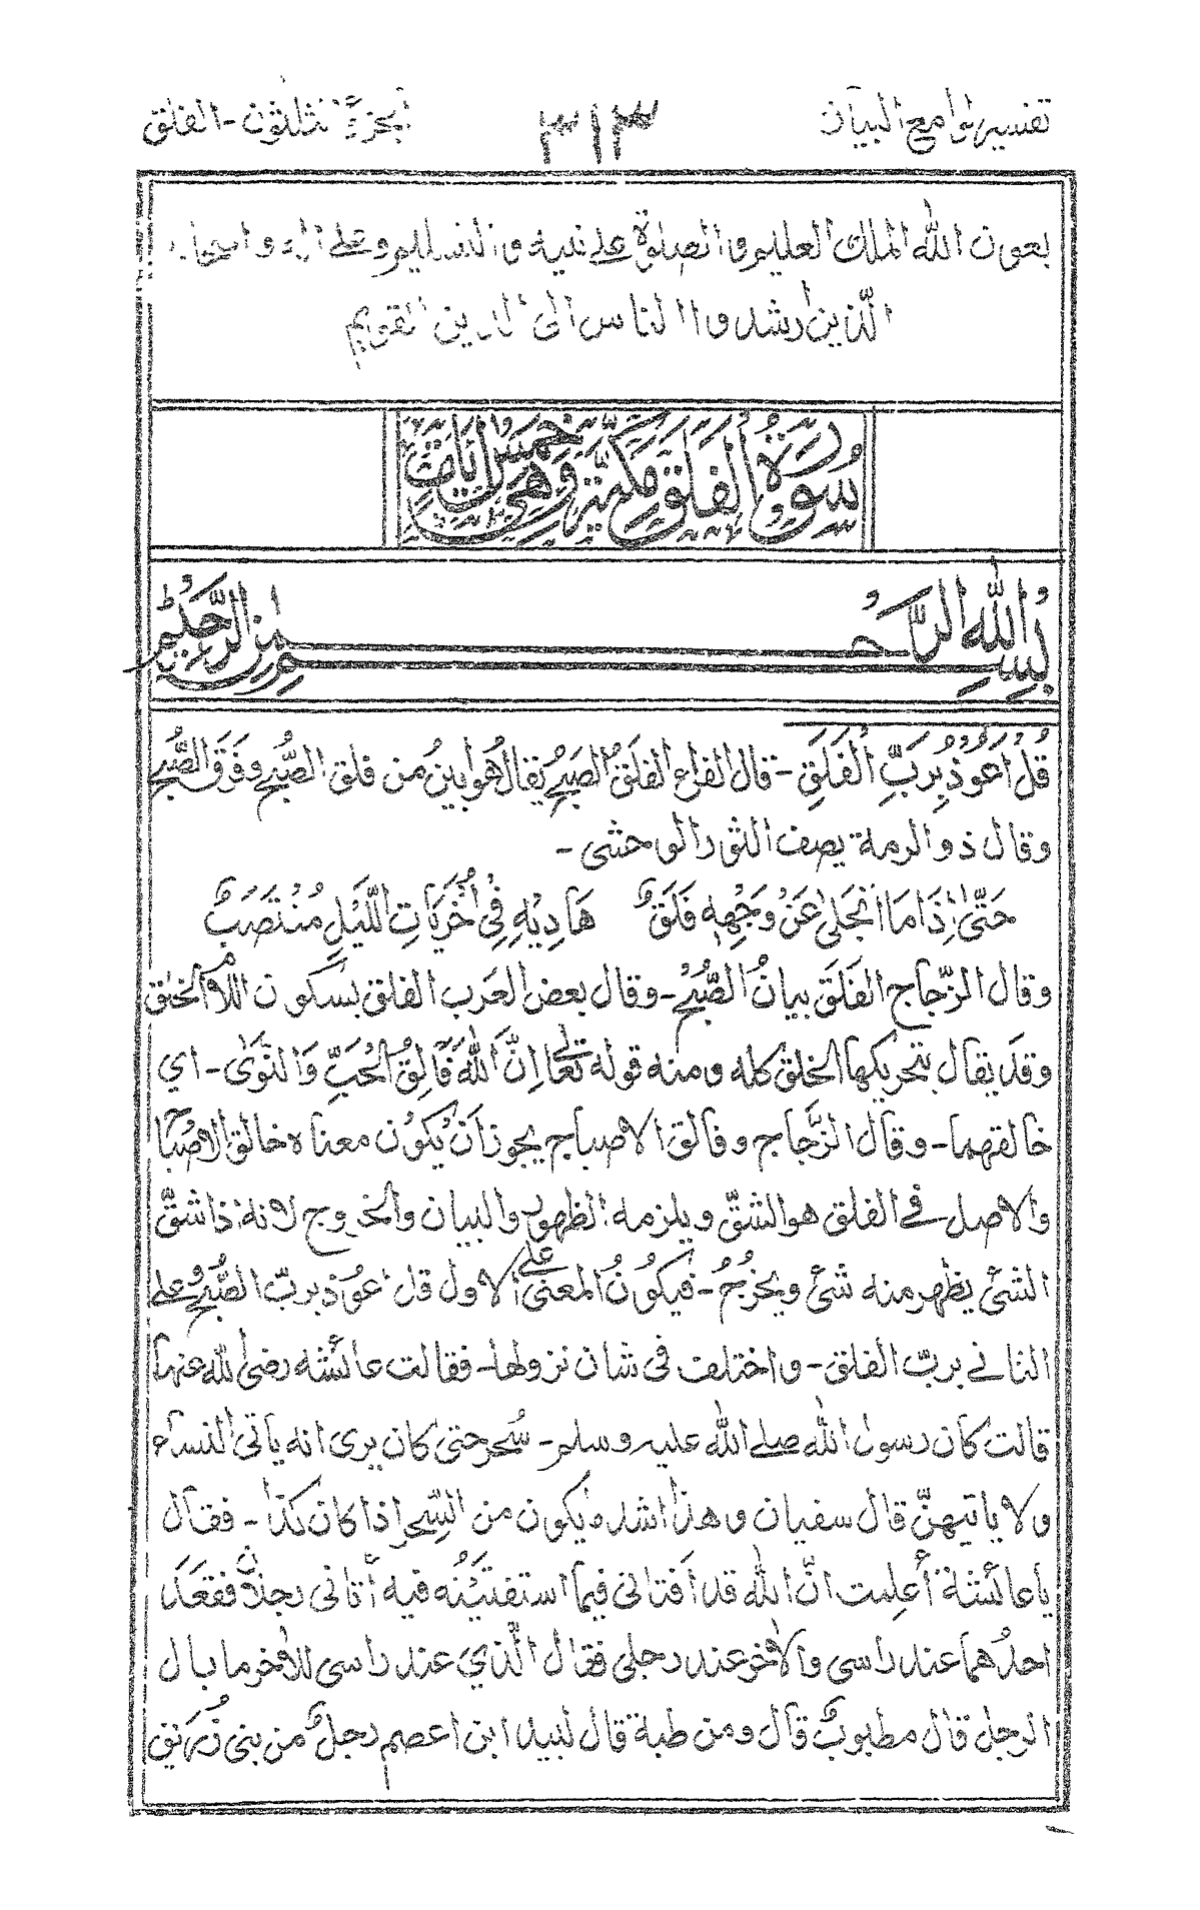 تفسير لوامع البيان
٣١٣
الجزء الثلثون - الفلق
بعون الله الملك العليم والصلوة على نبيه والتسليم وعلى اله واصحابه
الّذين ارشدوا الناس الى الدين القويم
سُورَةُ الْفَلَقِ مَكِّيَّةٌ وَهِيَ خَمْسُ اٰيَاتٍ
بِسْمِ اللهِ الرَّحْمٰنِ الرَّحِيْمِ
قُلْ اَعُوْذُ بِرَبِّ الْفَلَقِ - قال الفراء الفَلَقُ الصُبحُ يقال هُو ابينُ من فلق الصُّبحِ وفَرَقِ الصُّبحِ
وقال ذو الرمة يصف الثور الوحشى -
حَتّٰى اِذَا مَا انْجَلٰى عَنْ وَجْهِهٖ فَلَقٌ هَادِيْهِ فِيْ اُخْرَيَاتِ اللَّيْلِ مُنْتَصَبٌ
وقال الزّجاج الفَلَق بيانُ الصُّبْح - وقال بعض العَرب الفلق بسكون اللام الخلق
وقَد يقال بتحريكها الخلق كله ومنه قوله تعالى اِنَّ اللهَ فَالِقُ الْحَبِّ وَالنَّوٰى - اي
خالقهما - وقال الزّجاج وفالق الاصباح يجوز اَن يكُون معناه خالق الاصْبَاح
والاصل في الفلق هو الشقّ ويلزمه الظهور والبيان والخروج لانه اذا شقّ
الشئ يظهر منه شئ ويخرُجُ - فيكُونُ المعنى على الاول قل اعُوذ بربّ الصُّبحِ وعلى
الثاني بربّ الفلق - واختلف فى شان نزولها - فقالت عائشه رضى الله عنها
قالت كان رسول الله صلى الله عليه وسلم - سُحر حتى كان يرى انه ياتى النساء
ولا ياتيهنّ قال سفيان وهذا اشد ما يكون من السِّحر اذا كان كذا - فقال
يا عائشة أعلمت انّ الله قد اَفتانى فيما استفتَيْتُه فيه اَتانى رجلان فقعَدَ
احدُهما عند راسى والاٰخر عند رجلى فقال الّذي عند راسى للاٰخر ما بال
الرجل قال مطبوبٌ قال ومن طبه قال لبيد ابن اعصم رجلٌ من بنى زُريق